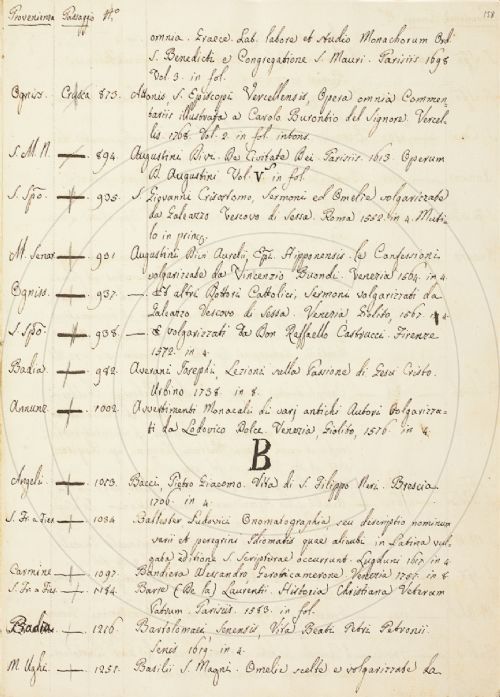 Provenienza Passaggio N.o
158
omnia. Graece. Lab. labore et studio Monachorum Ord.
S. Benedicti e Congregatione S. Mauri. Parisiis 1698
Vol. 3. in fol.
Ogniss. Crusca 873. Attonis, S. Episcopi Vercellensis, Opera omnia Commen-
tariis illustrata a Carolo Burontio del Signore. Vercel-
lis 1768. Vol. 2. in fol. intons.
S. M. N. 894. Augustini Divi. De Civitate Dei. Parisiis. 1613. Operum
D. Augustini Vol. V.s in fol.
S. Spō. 935. S. Giovanni Crisostomo, Sermoni ed Omelie volgarizzate
da Galeazzo Vescovo di Sessa. Roma 1552. in 4. Muti-
lo in princ.
M. Senar. 901. Augustini Divi Aurelii, Epi. Hipponensis. Le Confessioni
volgarizzate da Vincenzio Buondi. Venezia 1564. in 4.
Ogniss. 937. — ed altri Dottori Cattolici, Sermoni volgarizzati da
Galeazzo Vescovo di Sessa. Venezia, Giolito, 1567. 4.
S. Spō. 938. — volgarizzati da Don Raffaello Castrucci. Firenze
1572. in 4.
Badia 982. Averani Joseph, Lezioni sulla Passione di Gesù Cristo.
Urbino 1738. in 8.
Annunz. 1002. Avvertimenti Monacali di varj antichi Autori volgarizza-
ti da Lodovico Dolce. Venezia, Giolito, 1576 in 4.
B
Angeli. 1013. Bacci, Pietro Giacomo. Vita di S. Filippo Neri. Brescia
1706. in 4.
S. Fr. a Fies. 1034 Ballester Ludovici Onomatographia, seu descriptio nominum
varii et peregrini Idiomatis quae alicubi in Latina vul-
gata editione S. Scripturae occurrunt. Lugduni 1617. in 4
Carmine 1097. Bandiera Alesandro Gerotricamerone Venezia in 8
S. Fr. a Fies. 1184. Barre (De la) Laurentii. Historia Christiana Veterum
Patrum. Parisiis. 1583. in fol.
Badia 1216. Bartolomaei Senensis, Vita Beati Petri Petronii.
Senis 1619. in 4.
M. Ughi 1251. Basilii S. Magni. Omelie scelte e volgarizzate da